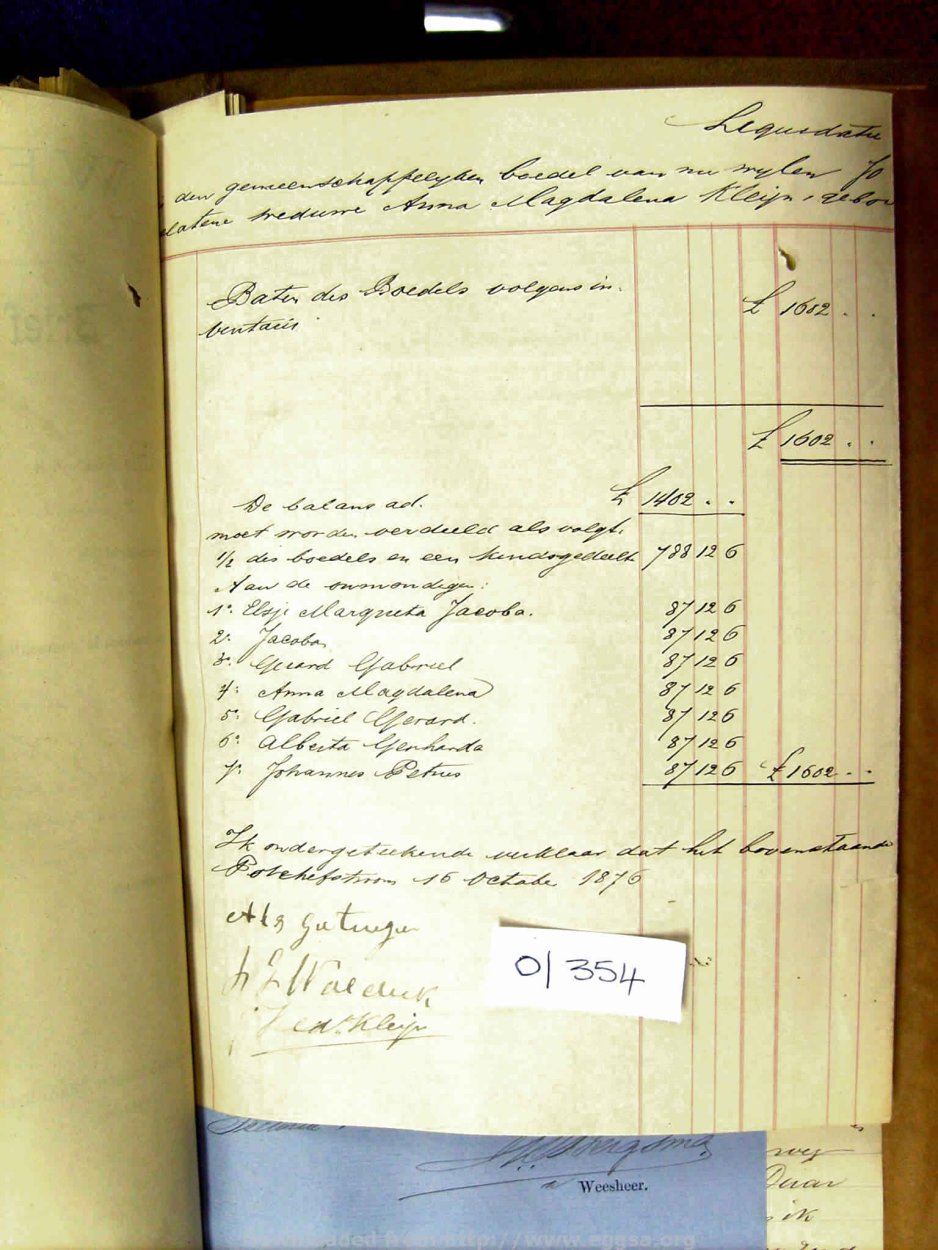 Liquidatie
den gemeenschappelyken boedel van nu wylen Jo
elatene weduwe Anna Magdalena Kleijn, gebor
Baten des Boedels volgens in-
ventaris £ 1602 . .
£ 1602 . .
De balans ad. £ 1402 . .
moet worden verdeeld als volgt.
1/2 des boedels en een kindsgedeelte 788 12 6
Aan de onmondigen:
1e. Elsje Margrieta Jacoba. 87 12 6
2e. Jacobus 87 12 6
3e. Gerard Gabriel 87 12 6
4e. Anna Magdalena 87 12 6
5e. Gabriel Gerard. 87 12 6
6e. Alberta Gerharda 87 12 6
7e. Johannes Petrus 87 12 6 £ 1602 . .
Ik ondergeteekende verklaar dat het bovenstaande
Potchefstroom 16 October 1876
Als Getuigen
Wed. Kleijn
0/354
Weesheer.
Duar
ik
http://www.eggsa.org